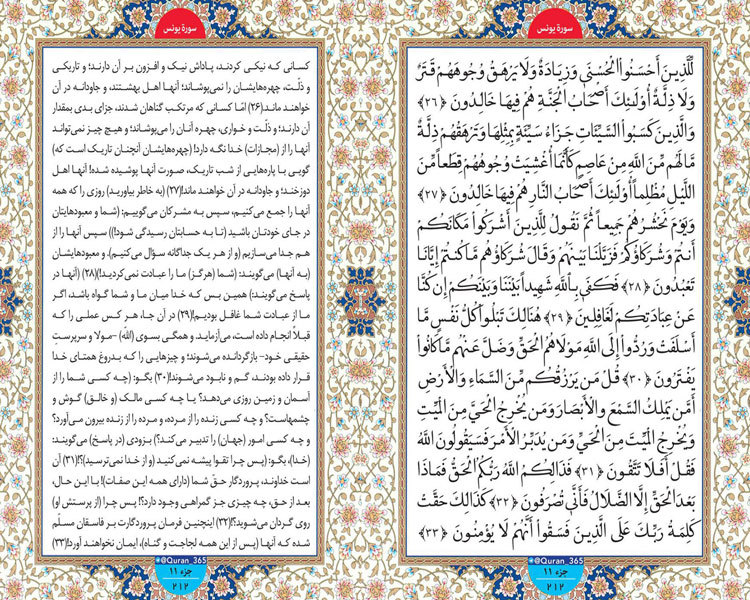 سورة یونس
لِّلَّذِينَ أَحْسَنُوا الْحُسْنَىٰ وَزِيَادَةٌ وَلَا يَرْهَقُ وُجُوهَهُمْ قَتَرٌ
وَلَا ذِلَّةٌ أُولَٰئِكَ أَصْحَابُ الْجَنَّةِ هُمْ فِيهَا خَالِدُونَ ﴿۲۶﴾
وَالَّذِينَ كَسَبُوا السَّيِّئَاتِ جَزَاءُ سَيِّئَةٍ بِمِثْلِهَا وَتَرْهَقُهُمْ ذِلَّةٌ
مَّا لَهُم مِّنَ اللَّهِ مِنْ عَاصِمٍ كَأَنَّمَا أُغْشِيَتْ وُجُوهُهُمْ قِطَعاً مِّنَ
اللَّيْلِ مُظْلِماً أُولَٰئِكَ أَصْحَابُ النَّارِ هُمْ فِيهَا خَالِدُونَ ﴿۲۷﴾
وَيَوْمَ نَحْشُرُهُمْ جَمِيعاً ثُمَّ نَقُولُ لِلَّذِينَ أَشْرَكُوا مَكَانَكُمْ
أَنتُمْ وَشُرَكَاؤُكُمْ فَزَيَّلْنَا بَيْنَهُمْ وَقَالَ شُرَكَاؤُهُم مَّا كُنتُمْ إِيَّانَا
تَعْبُدُونَ ﴿۲۸﴾ فَكَفَىٰ بِاللَّهِ شَهِيداً بَيْنَنَا وَبَيْنَكُمْ إِن كُنَّا
عَنْ عِبَادَتِكُمْ لَغَافِلِينَ ﴿۲۹﴾ هُنَالِكَ تَبْلُوا كُلُّ نَفْسٍ مَّا
أَسْلَفَتْ وَرُدُّوا إِلَى اللَّهِ مَوْلَاهُمُ الْحَقِّ وَضَلَّ عَنْهُم مَّا كَانُوا
يَفْتَرُونَ ﴿۳۰﴾ قُلْ مَن يَرْزُقُكُم مِّنَ السَّمَاءِ وَالْأَرْضِ
أَمَّن يَمْلِكُ السَّمْعَ وَالْأَبْصَارَ وَمَن يُخْرِجُ الْحَيَّ مِنَ الْمَيِّتِ
وَيُخْرِجُ الْمَيِّتَ مِنَ الْحَيِّ وَمَن يُدَبِّرُ الْأَمْرَ فَسَيَقُولُونَ اللَّهُ
فَقُلْ أَفَلَا تَتَّقُونَ ﴿۳۱﴾ فَذَٰلِكُمُ اللَّهُ رَبُّكُمُ الْحَقُّ فَمَاذَا
بَعْدَ الْحَقِّ إِلَّا الضَّلَالُ فَأَنَّىٰ تُصْرَفُونَ ﴿۳۲﴾ كَذَٰلِكَ حَقَّتْ
كَلِمَةُ رَبِّكَ عَلَى الَّذِينَ فَسَقُوا أَنَّهُمْ لَا يُؤْمِنُونَ ﴿۳۳﴾
@Quran_365
جزء ۱۱
۲۱۲
سورة یونس
کسانی که نیکی کردند، پاداش نیک و افزون بر آن دارند؛ و تاریکی
و ذلّت، چهره‌هایشان را نمی‌پوشاند؛ آنها اهل بهشتند، و جاودانه در آن
خواهند ماند.(۲۶) امّا کسانی که مرتکب گناهان شدند، جزای بدی بمقدار
آن دارند؛ و ذلّت و خواری، چهره آنان را می‌پوشاند؛ و هیچ چیز نمی‌تواند
آنها را از (مجازات) خدا نگه دارد! (چهره‌هایشان آنچنان تاریک است که)
گویی با پاره‌هایی از شب تاریک، صورت آنها پوشیده شده! آنها اهل
دوزخند؛ و جاودانه در آن خواهند ماند!(۲۷) (به خاطر بیاورید) روزی را که همه
آنها را جمع می‌کنیم، سپس به مشرکان می‌گوییم: (شما و معبودهایتان
در جای خودتان باشید (تا به حسابتان رسیدگی شود!)) سپس آنها را از
هم جدا می‌سازیم (و از هر یک جداگانه سؤال می‌کنیم). و معبودهایشان
(به آنها) می‌گویند: (شما (هرگز) ما را عبادت نمی‌کردید!)(۲۸) (آنها در
پاسخ می‌گویند:) همین بس که خدا میان ما و شما گواه باشد، اگر
ما از عبادت شما غافل بودیم!(۲۹) در آن جا، هر کس عملی را که
قبلاً انجام داده است، می‌آزماید. و همگی بسوی (الله) -مولا و سرپرست
حقیقی خود- بازگردانده می‌شوند؛ و چیزهایی را که بدروغ همتای خدا
قرار داده بودند، گم و نابود می‌شوند!(۳۰) بگو: (چه کسی شما را از
آسمان و زمین روزی می‌دهد؟ یا چه کسی مالک (و خالق) گوش و
چشمهاست؟ و چه کسی زنده را از مرده، و مرده را از زنده بیرون می‌آورد؟
و چه کسی امور (جهان) را تدبیر می‌کند؟) بزودی (در پاسخ) می‌گویند:
(خدا)، بگو: (پس چرا تقوا پیشه نمی‌کنید (و از خدا نمی‌ترسید)؟!(۳۱) آن
است خداوند، پروردگار حق شما (دارای همه این صفات)! با این حال،
بعد از حق، چه چیزی جز گمراهی وجود دارد؟! پس چرا (از پرستش او)
روی گردان می‌شوید؟!(۳۲) اینچنین فرمان پروردگارت بر فاسقان مسلّم
شده که آنها (پس از این همه لجاجت و گناه)، ایمان نخواهند آورد!(۳۳)
@Quran_365
جزء ۱۱
۲۱۲